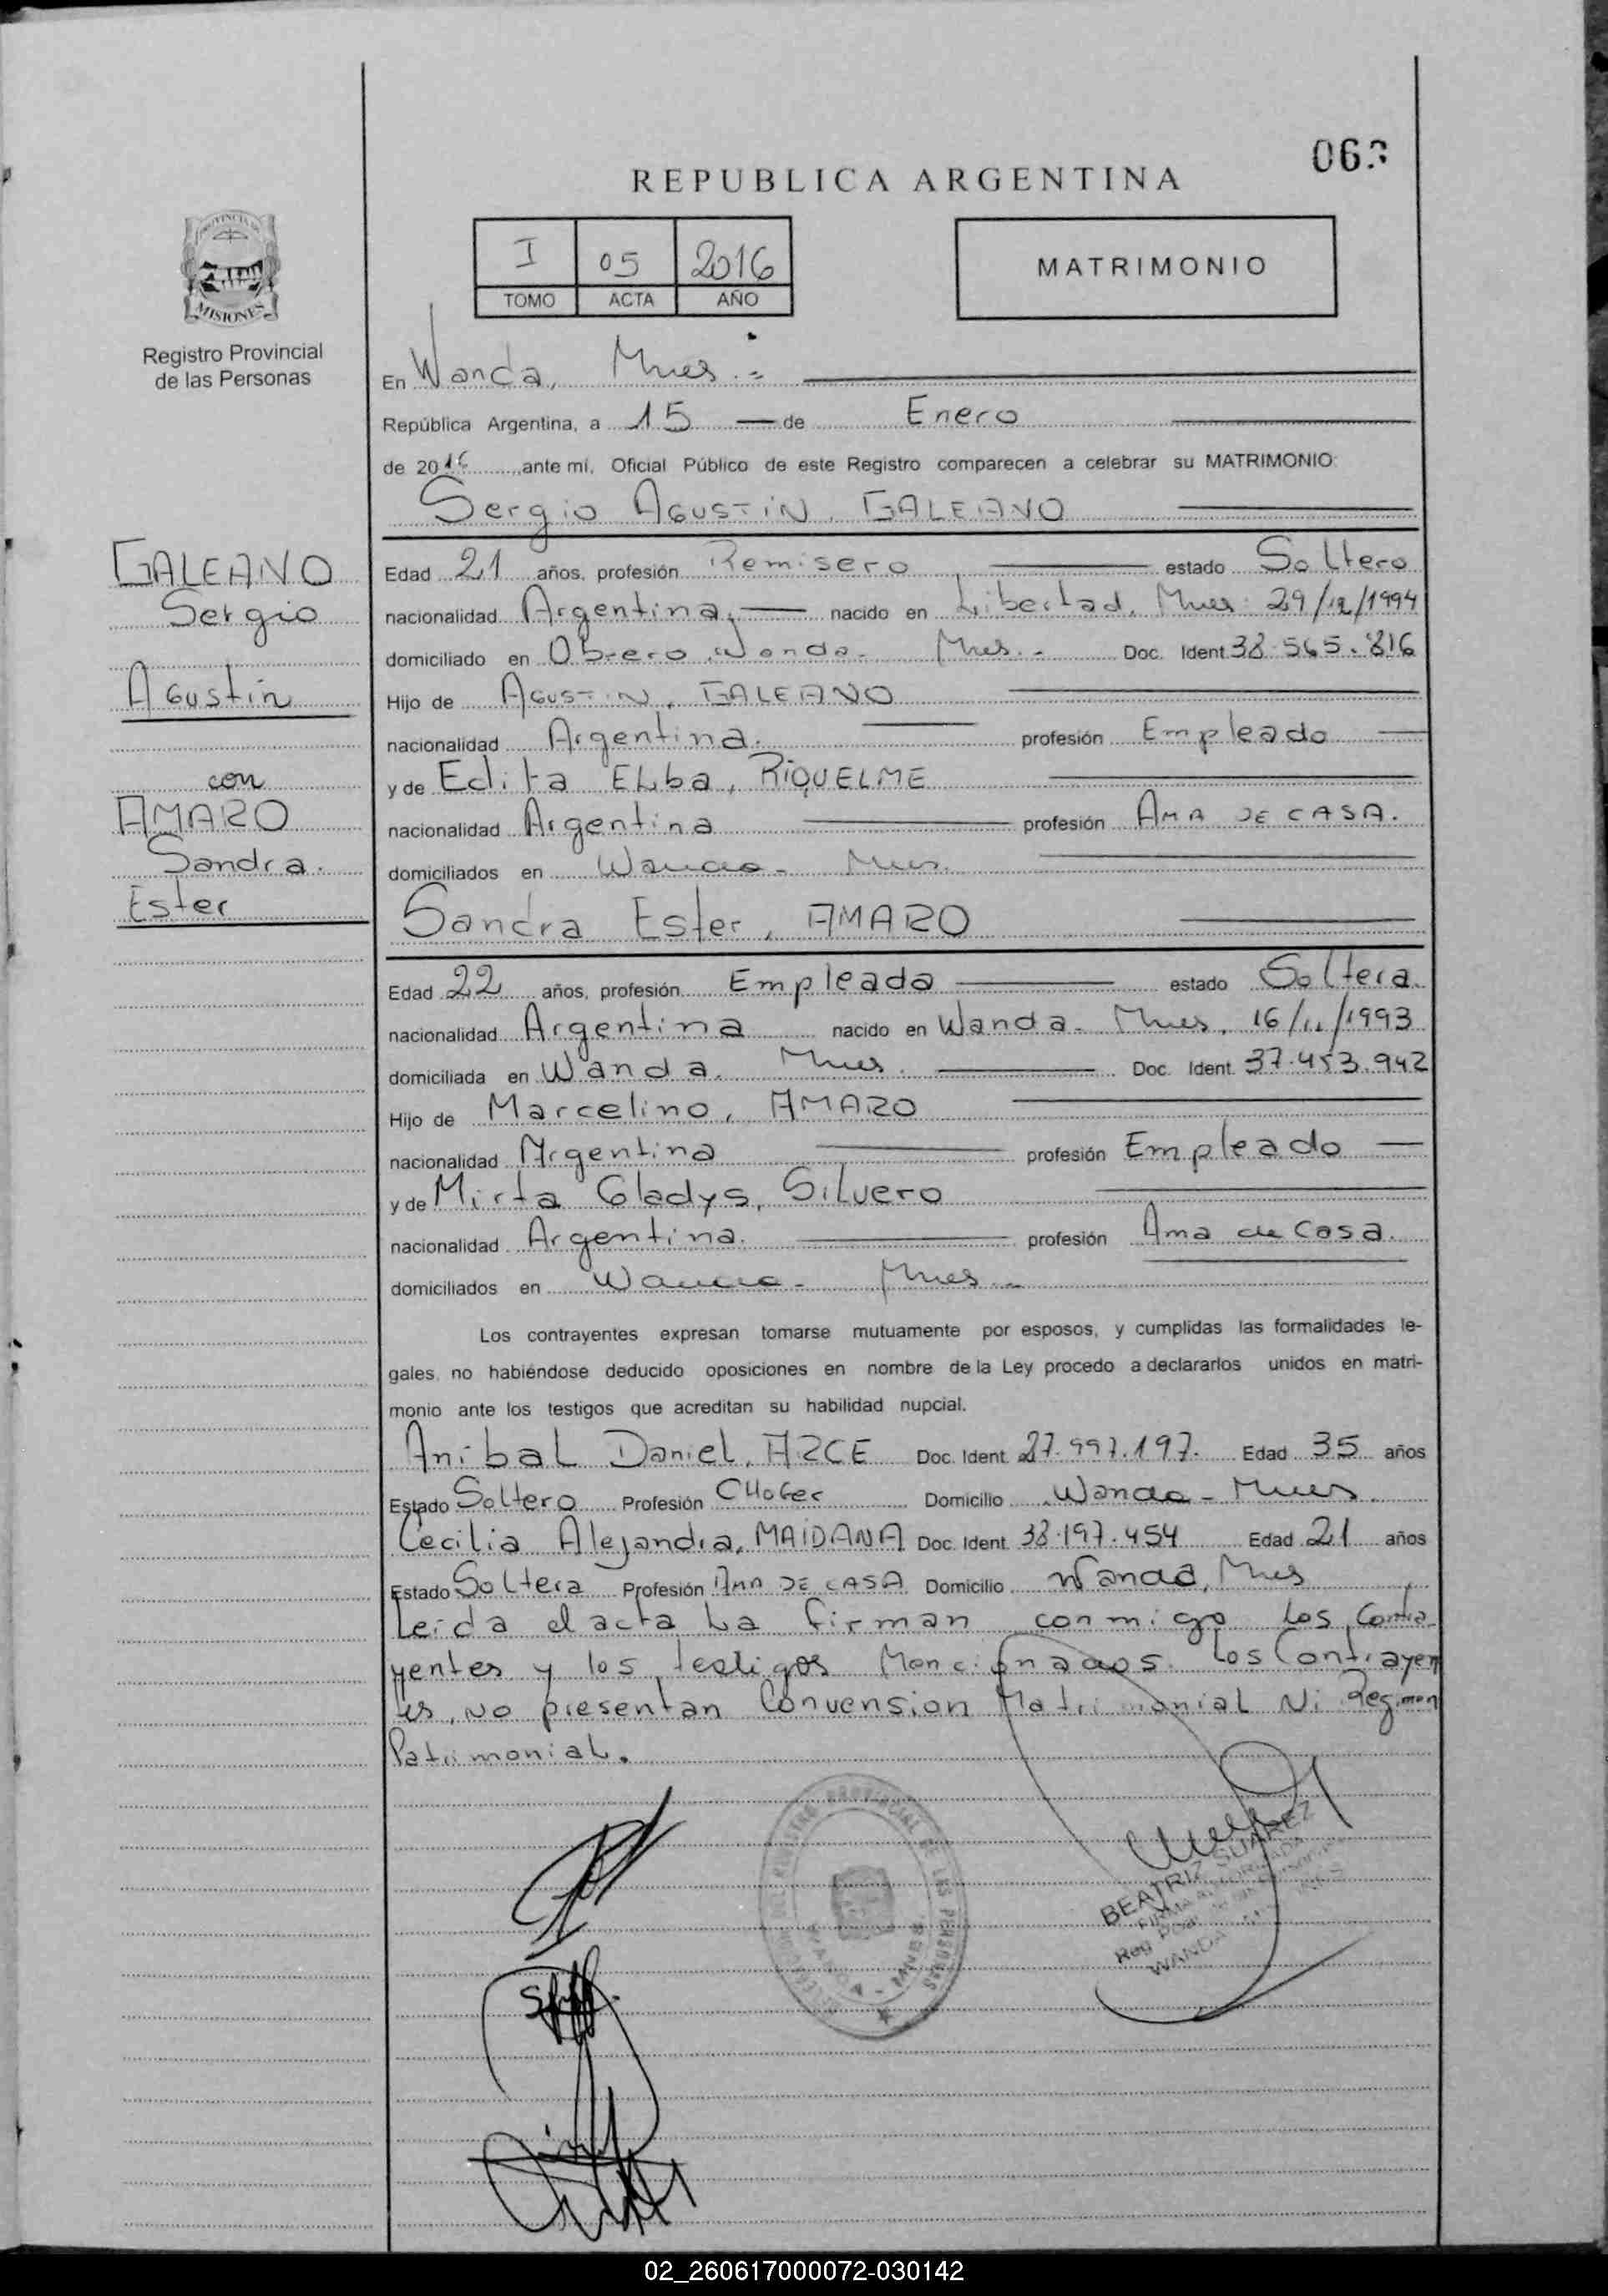 REPUBLICA ARGENTINA
I 05 2016
TOMO ACTA AÑO
MATRIMONIO
PROVINCIA DE
MISIONES
Registro Provincial
de las Personas
En Wanda, Mnes.-
República Argentina, a 15 de Enero
de 2016 ,ante mí, Oficial Público de este Registro comparecen a celebrar su MATRIMONIO:
Sergio AGUSTIN, GALEANO
GALEANO
Sergio
AGustin
con
AMARO
Sandra.
Ester
Edad 21 años, profesión Remisero estado Soltero
nacionalidad Argentina. nacido en Libertad, Mnes. 29/12/1994
domiciliado en Obrero Wanda. Mnes.- Doc. Ident. 38.565.816
Hijo de AGUSTIN, GALEANO
nacionalidad Argentina. profesión Empleado
y de Edita ELba, RIQUELME
nacionalidad Argentina profesión AMA DE CASA.
domiciliados en Wanda- Mnes.
Sandra Ester, AMARO
Edad 22 años, profesión Empleada estado Soltera.
nacionalidad Argentina nacido en Wanda- Mnes, 16/11/1993
domiciliada en Wanda. Mnes. Doc. Ident. 37.453.942
Hijo de Marcelino, AMARO
nacionalidad Argentina profesión Empleado
y de Mirta Gladys, SiLvero
nacionalidad Argentina. profesión Ama de Casa.
domiciliados en Wanda- Mnes.-
Los contrayentes expresan tomarse mutuamente por esposos, y cumplidas las formalidades le-
gales, no habiéndose deducido oposiciones en nombre de la Ley procedo a declararlos unidos en matri-
monio ante los testigos que acreditan su habilidad nupcial.
AnibaL DanieL, ARCE Doc. Ident. 27.997.197. Edad 35 años
Estado Soltero Profesión CHofer Domicilio Wanda- Mnes.
Cecilia Alejandra, MAIDANA Doc. Ident. 38.197.454 Edad 21 años
Estado Soltera Profesión AMA DE CASA Domicilio Wanda, Mnes
Leida el acta La firman conmigo los Contra-
yentes y los testigos Mencionados. Los Contrayen
tes, NO presentan Convension MatrimoniaL Ni Regimen
PatrimoniaL.
BEATRIZ SUAREZ
FIRMA AUTORIZADA
WANDA
02_260617000072-030142